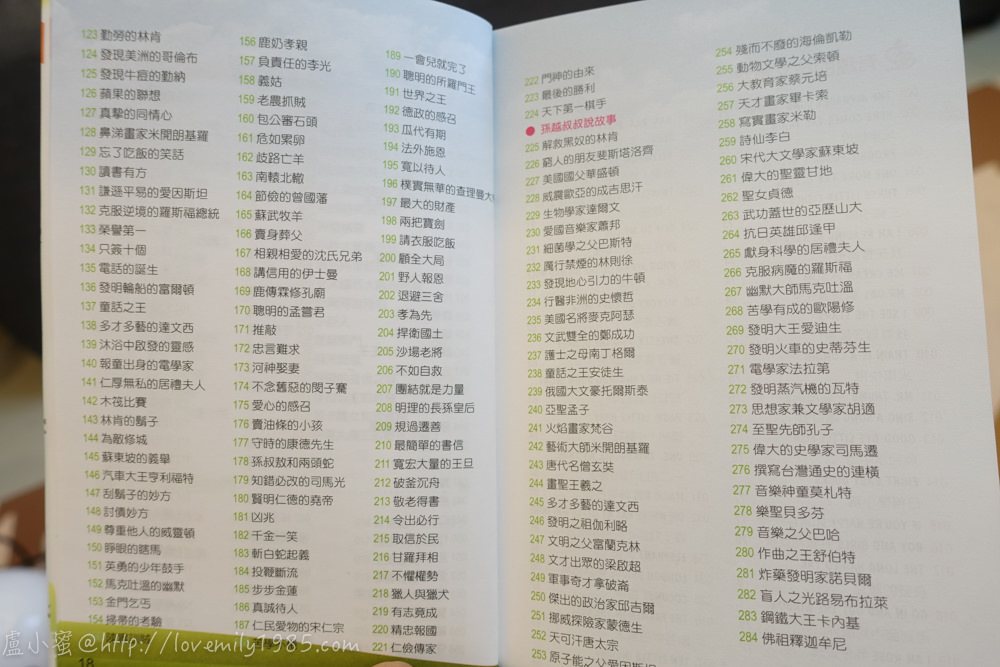 123 勤勞的林肯
124 發現美洲的哥倫布
125 發現牛痘的勤納
126 蘋果的聯想
127 真摯的同情心
128 鼻涕畫家米開朗基羅
129 忘了吃飯的笑話
130 讀書有方
131 謙遜平易的愛因斯坦
132 克服逆境的羅斯福總統
133 榮譽第一
134 只簽十個
135 電話的誕生
136 發明輪船的富爾頓
137 童話之王
138 多才多藝的達文西
139 沐浴中啟發的靈感
140 報童出身的電學家
141 仁厚無私的居禮夫人
142 木筏比賽
143 林肯的鬍子
144 為敵修城
145 蘇東坡的義舉
146 汽車大王亨利福特
147 刮鬍子的妙方
148 討債妙方
149 尊重他人的威靈頓
150 睜眼的瞎馬
151 英勇的少年鼓手
152 馬克吐溫的幽默
153 金門乞丐
154 掃帚的考驗
18
156 鹿奶孝親
157 負責任的李光
158 義姑
159 老農抓賊
160 包公審石頭
161 危如累卵
162 歧路亡羊
163 南轅北轍
164 節儉的曾國藩
165 蘇武牧羊
166 賣身葬父
167 相親相愛的沈氏兄弟
168 講信用的伊士曼
169 鹿傳霖修孔廟
170 聰明的孟嘗君
171 推敲
172 忠言難求
173 河神娶妻
174 不念舊惡的閔子騫
175 愛心的感召
176 賣油條的小孩
177 守時的康德先生
178 孫叔敖和兩頭蛇
179 知錯必改的司馬光
180 賢明仁德的堯帝
181 凶兆
182 千金一笑
183 斬白蛇起義
184 投鞭斷流
185 步步金蓮
186 真誠待人
187 仁民愛物的宋仁宗
189 一會兒就完了
190 聰明的所羅門王
191 世界之王
192 德政的感召
193 瓜代有期
194 法外施恩
195 寬以待人
196 樸實無華的查理曼大
197 最大的財產
198 兩把寶劍
199 請衣服吃飯
200 顧全大局
201 野人報恩
202 退避三舍
203 孝為先
204 捍衛國土
205 沙場老將
206 不如自救
207 團結就是力量
208 明理的長孫皇后
209 規過遷善
210 最簡單的書信
211 寬宏大量的王旦
212 破釜沉舟
213 敬老得書
214 令出必行
215 取信於民
216 甘羅拜相
217 不懼權勢
218 獵人與獵犬
219 有志竟成
220 精忠報國
221 仁儉傳家
222 門神的由來
223 最後的勝利
224 天下第一棋手
● 孫越叔叔說故事
225 解救黑奴的林肯
226 窮人的朋友斐斯塔洛齊
227 美國國父華盛頓
228 威震歐亞的成吉思汗
229 生物學家達爾文
230 愛國音樂家蕭邦
231 細菌學之父巴斯特
232 厲行禁煙的林則徐
233 發現地心引力的牛頓
234 行醫非洲的史懷哲
235 美國名將麥克阿瑟
236 文武雙全的鄭成功
237 護士之母南丁格爾
238 童話之王安徒生
239 俄國大文豪托爾斯泰
240 亞聖孟子
241 火焰畫家梵谷
242 藝術大師米開朗基羅
243 唐代名僧玄奘
244 書聖王羲之
245 多才多藝的達文西
246 發明之祖伽利略
247 文明之父富蘭克林
248 文才出眾的梁啟超
249 軍事奇才拿破崙
250 傑出的政治家邱吉爾
251 挪威探險家蒙德生
252 天可汗唐太宗
253 原子能之父愛因斯坦
254 殘而不廢的海倫凱勒
255 動物文學之父索頓
256 大教育家蔡元培
257 天才畫家畢卡索
258 寫實畫家米勒
259 詩仙李白
260 宋代大文學家蘇東坡
261 偉大的聖靈甘地
262 聖女貞德
263 武功蓋世的亞歷山大
264 抗日英雄邱逢甲
265 獻身科學的居禮夫人
266 克服病魔的羅斯福
267 幽默大師馬克吐溫
268 苦學有成的歐陽修
269 發明大王愛迪生
270 發明火車的史蒂芬生
271 電學家法拉第
272 發明蒸汽機的瓦特
273 思想家兼文學家胡適
274 至聖先師孔子
275 偉大的史學家司馬遷
276 撰寫台灣通史的連橫
277 音樂神童莫札特
278 樂聖貝多芬
279 音樂之父巴哈
280 作曲之王舒伯特
281 炸藥發明家諾貝爾
282 盲人之光路易布拉萊
283 鋼鐵大王卡內基
284 佛祖釋迦牟尼
盧小蜜@http://lovemily1985.com